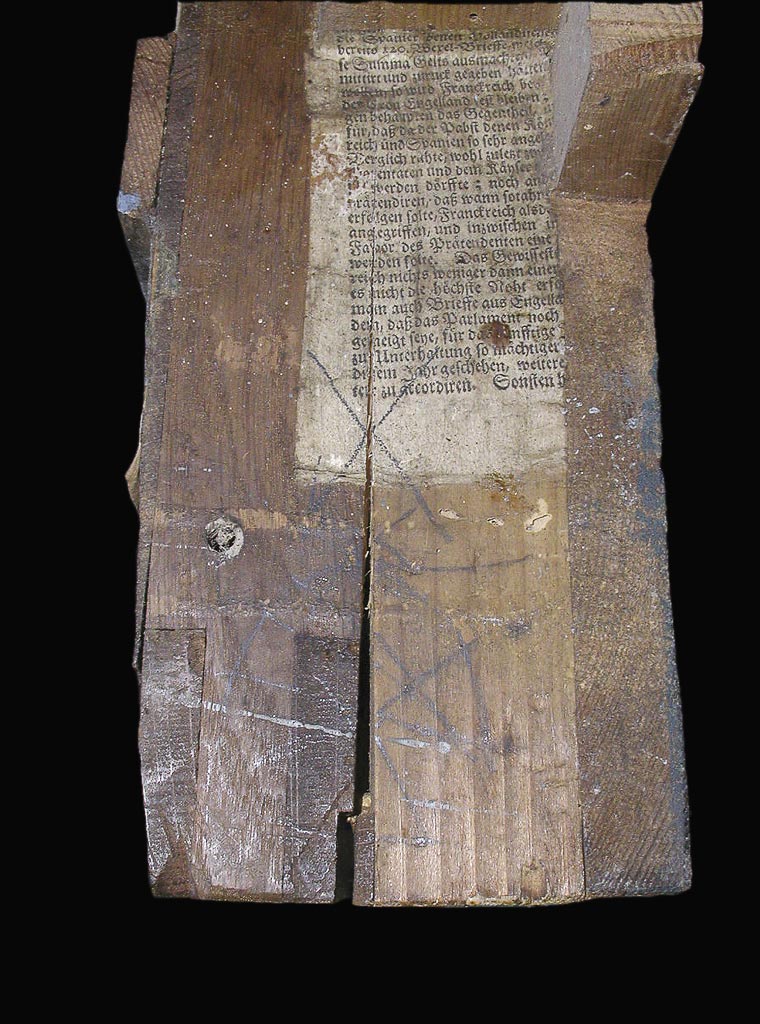 die Spanier denen Holländischen
bereits 120. Wexel-Brieffe, welch
se Summa Gelts ausmachen
mittirt und zurück gegeben hätten
wollen, so wird Franckreich bey
der Cron Engelland fest bleiben
gen behaupten das Gegentheil
für, daß da der Pabst denen Kö
reich und Spanien so sehr angel
Verglich rahte, wohl zuletzt zw
tentaten und dem Käyser
werden dörffte; noch an
prätendiren, daß wann sothane
erfolgen solte, Franckreich alsd
angegriffen, und inzwischen in
Favor des Prätendenten eine
werden solte. Das Gewisseste
reich nichts weniger dann einen
es nicht die höchste Noht erfo
man auch Brieffe aus Engella
den, daß das Parlament noch
geneigt seye, für das künfftige
zu Unterhaltung so mächtiger
diesem Jahr geschehen, weitere
zu accordiren. Sonsten h